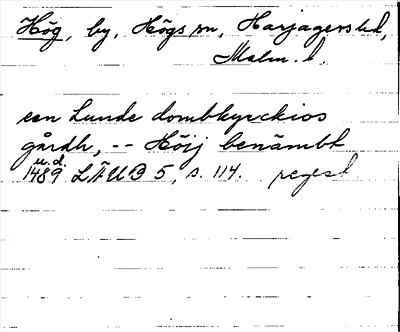 Hög, by, Högs sn, Harjagers hd,
Malm. l.
een Lunde dombkyrckios
gårdh, -- Höij benämbt
u.d.
1489 LÄUB 5, s. 114. regest